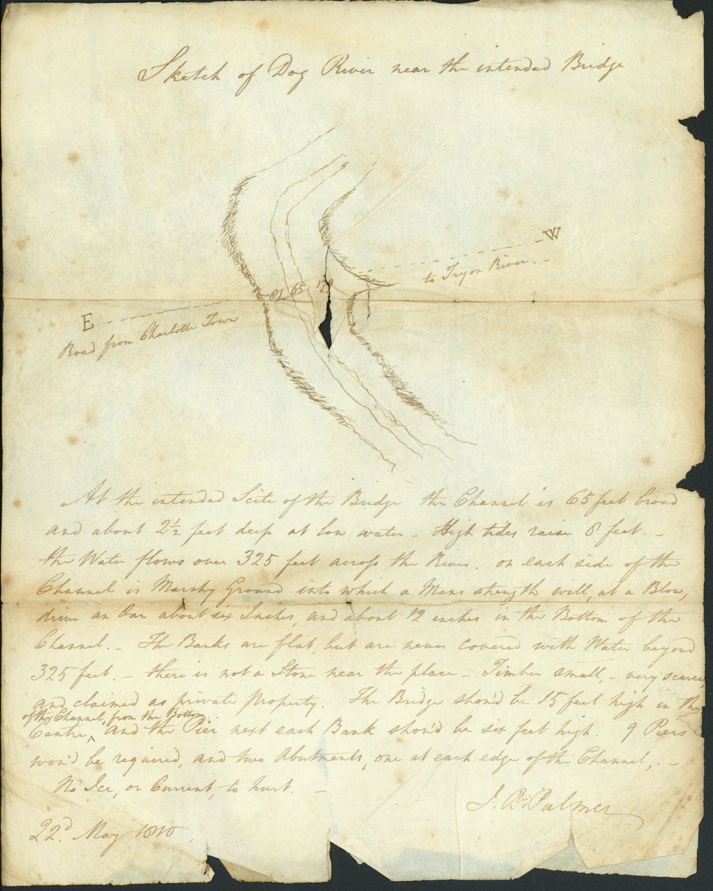 Sketch of Dog River near the intended Bridge
W
to Tryon River.
81 65 179
E
Road from Charlotte Town
At the intended Scite of the Bridge the Channel is 65 feet broad
and about 2½ feet deep at low water - High tides raise 8 feet. -
the Water flows over 325 feet across the River. on each side of the
Channel is Marshy Ground into which a Mans strength will, at a Blow,
drive an Oar about six Inches, and about 12 inches in the Bottom of the
Channel. - The Banks are flat, but are never covered with Water beyond
325 feet. - there is not a Stone near the place - Timber small, - very scarce,
and claimed as private property. The Bridge shou'd be 15 feet high in the
of the Channel, from the Bottom
Centre ‸ and the Pier next each Bank shou'd be six feet high. 9 Piers
wou'd be required, and two Abutments, one at each edge of the Channel, -
No Ice, or Current, to hurt. -
J. B. Palmer
22d. May 1810